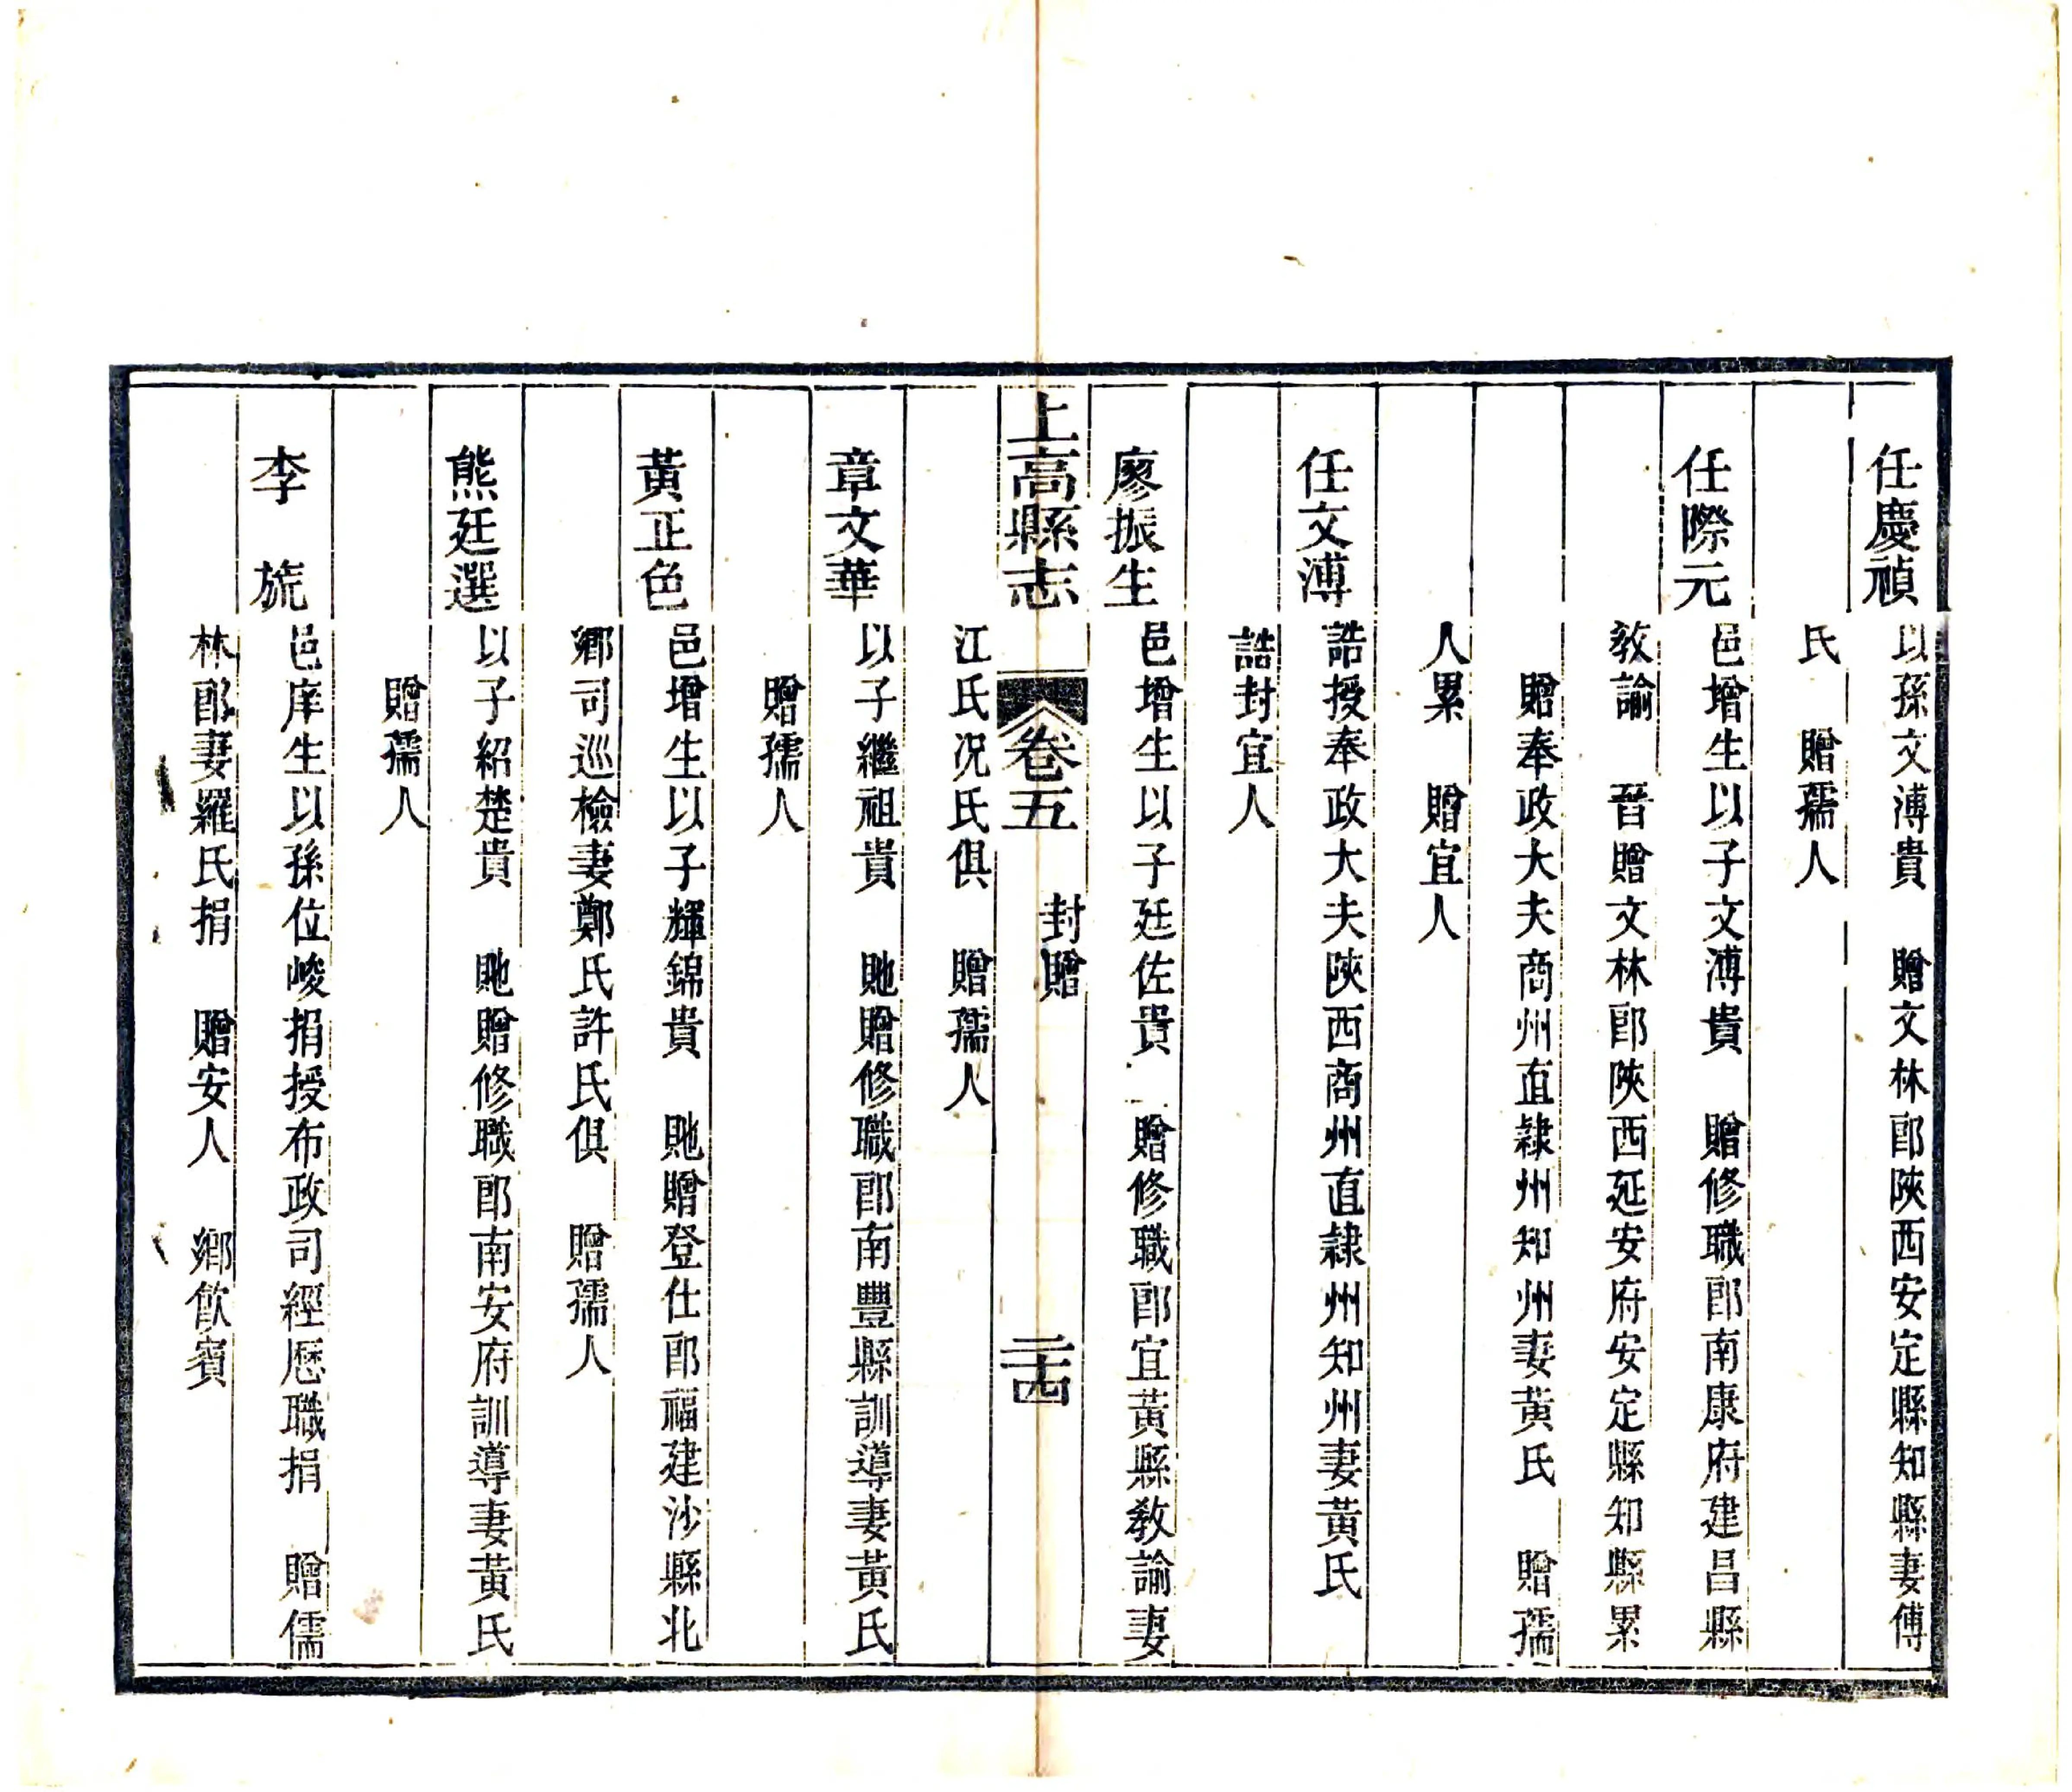 任慶禎 以孫文溥貴 贈文林郎陝西安定縣知縣妻傅
氏 贈孺人
任際元 邑增生以子文溥貴 贈修職郎南康府建昌縣
敎諭 晉贈文林郎陝西延安府安定縣知縣累
贈奉政大夫商州直隸州知州妻黃氏 贈孺
人累 贈宜人
任文溥 誥授奉政大夫陝西商州直隸州知州妻黃氏
誥封宜人
廖振生 邑增生以子廷佐貴 贈修職郎宜黃縣敎諭妻
上高縣志 卷五 封贈 二十四
江氏况氏俱 贈孺人
章文華 以子繼祖貴 貤贈修職郎南豐縣訓導妻黃氏
贈孺人
黃正色 邑增生以子輝錦貴 貤贈登仕郎福建沙縣北
鄉司巡檢妻鄭氏許氏俱 贈孺人
熊廷選 以子紹楚貴 貤贈修職郎南安府訓導妻黃氏
贈孺人
李 旈 邑庠生以孫位峻捐授布政司經歷職捐 贈儒
林郎妻羅氏捐 贈安人 鄉飮賓